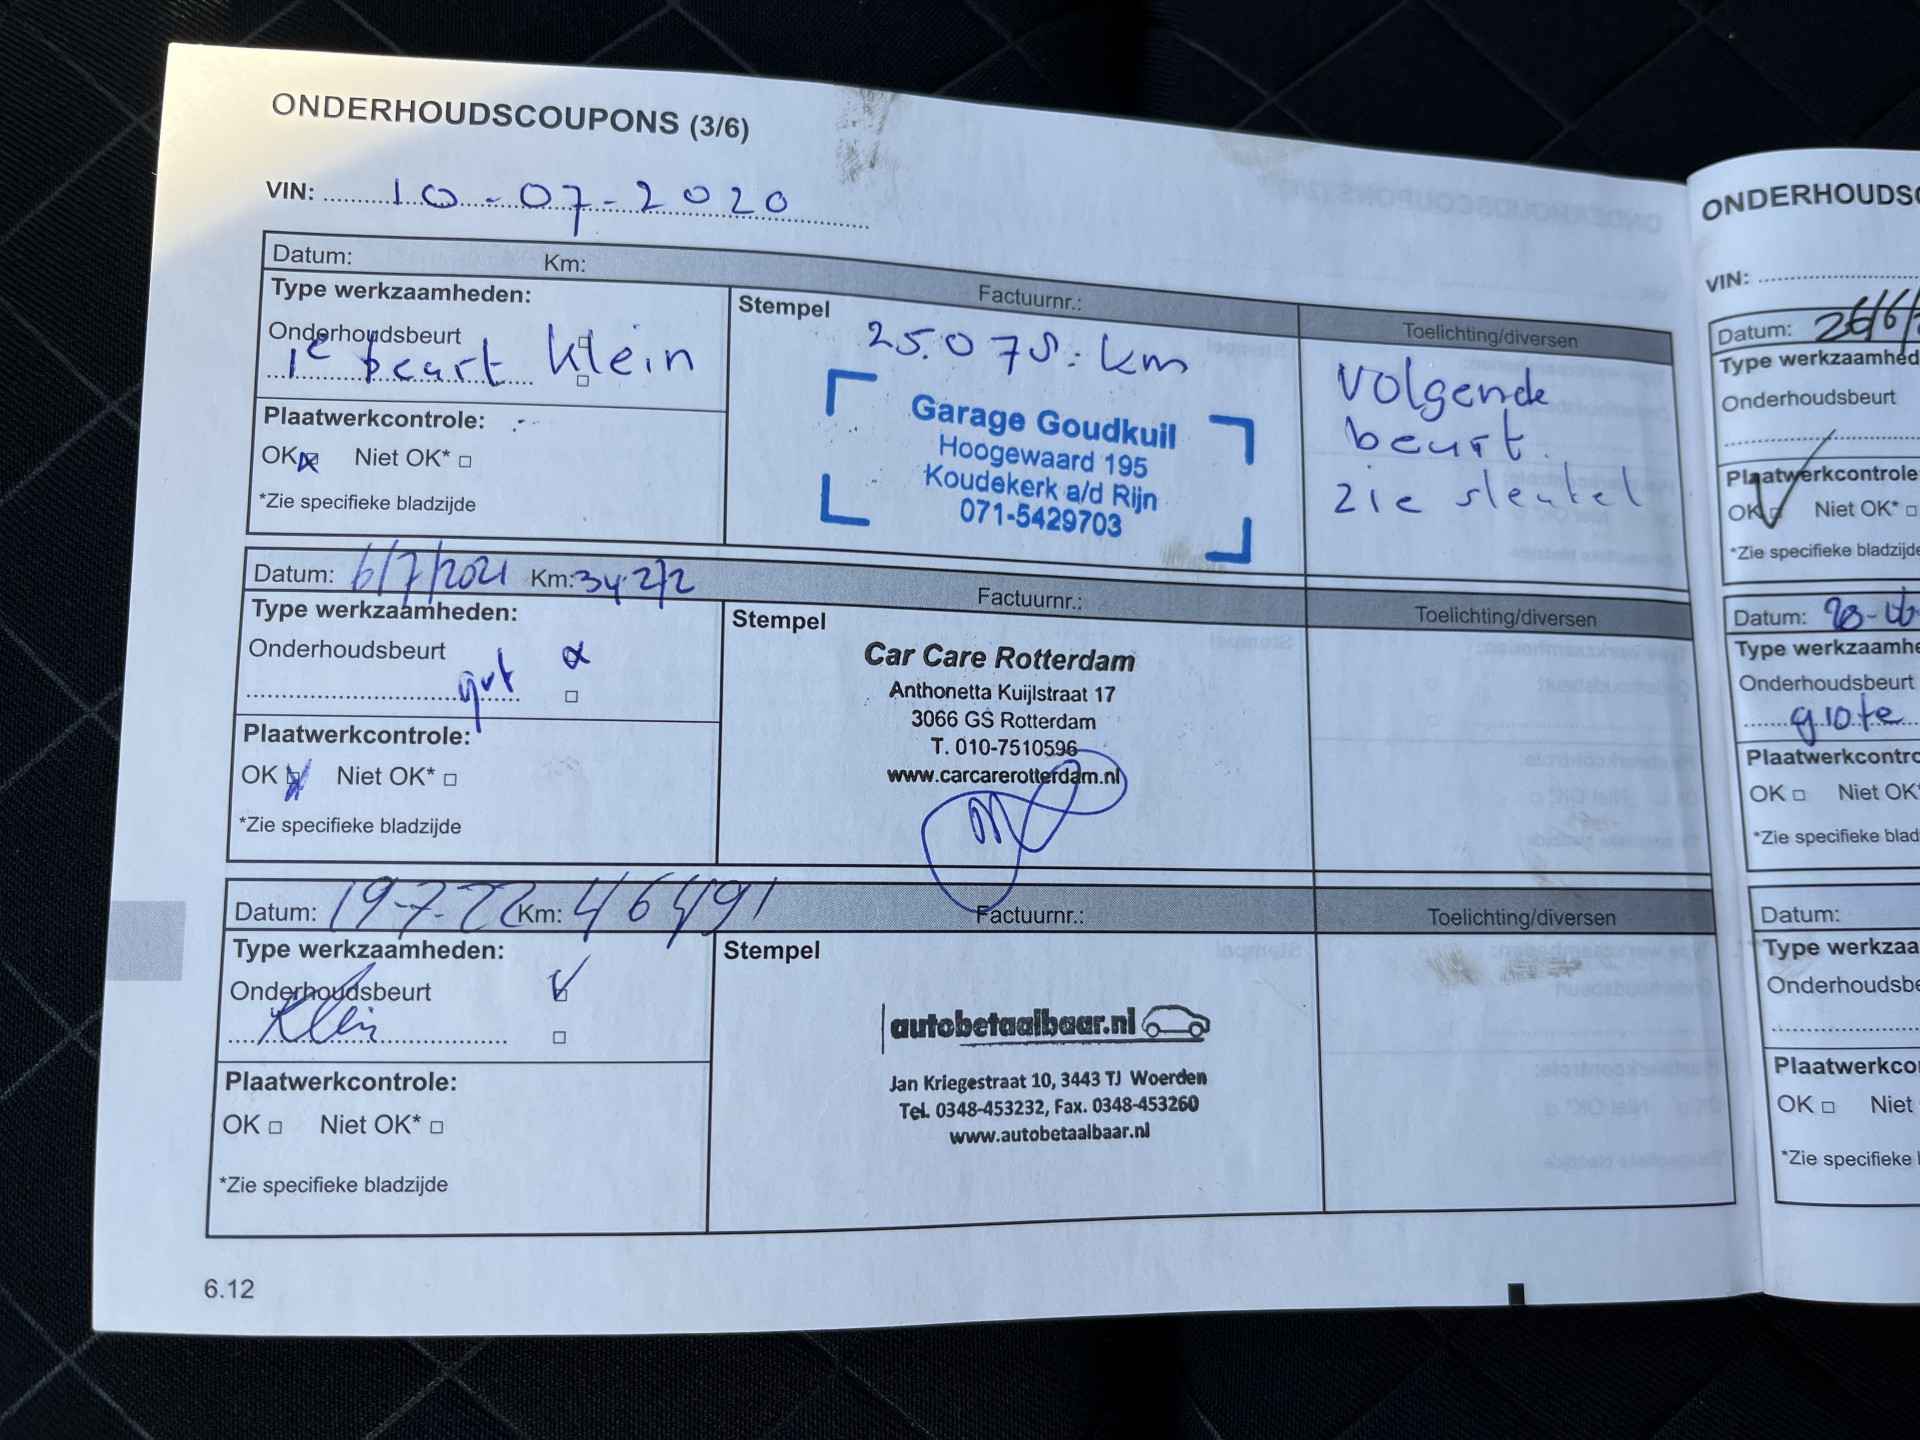 ONDERHOUDSCOUPONS (3/6)
VIN: 10-07-2020
Datum: Km: Factuurnr.:
Type werkzaamheden:
Onderhoudsbeurt
1e beurt klein
Plaatwerkcontrole:
OK Niet OK*
*Zie specifieke bladzijde
Stempel
25.078.km
Garage Goudkuil
Hoogewaard 195
Koudekerk a/d Rijn
071-5429703
Toelichting/diversen
Volgende
beurt.
zie sleutel
Datum: 6/7/2021 Km: 34.212 Factuurnr.:
Type werkzaamheden:
Onderhoudsbeurt
Plaatwerkcontrole:
OK Niet OK*
*Zie specifieke bladzijde
Stempel
Car Care Rotterdam
Anthonetta Kuijlstraat 17
3066 GS Rotterdam
T. 010-7510596
www.carcarerotterdam.nl
Toelichting/diversen
Datum: 19-7-22 Km: 46491 Factuurnr.:
Type werkzaamheden:
Onderhoudsbeurt
Klein
Plaatwerkcontrole:
OK Niet OK*
*Zie specifieke bladzijde
Stempel
autobetaalbaar.nl
Jan Kriegestraat 10, 3443 TJ Woerden
Tel. 0348-453232, Fax. 0348-453260
www.autobetaalbaar.nl
Toelichting/diversen
6.12
ONDERHOUDSC
VIN:
Datum: 26/6/
Type werkzaamhed
Onderhoudsbeurt
Plaatwerkcontrole
OK Niet OK*
*Zie specifieke bladzijde
Datum:
Type werkzaamhe
Onderhoudsbeurt
grote
Plaatwerkcontro
OK Niet OK*
*Zie specifieke blad
Datum:
Type werkzaa
Onderhoudsbe
Plaatwerkco
OK Niet
*Zie specifieke